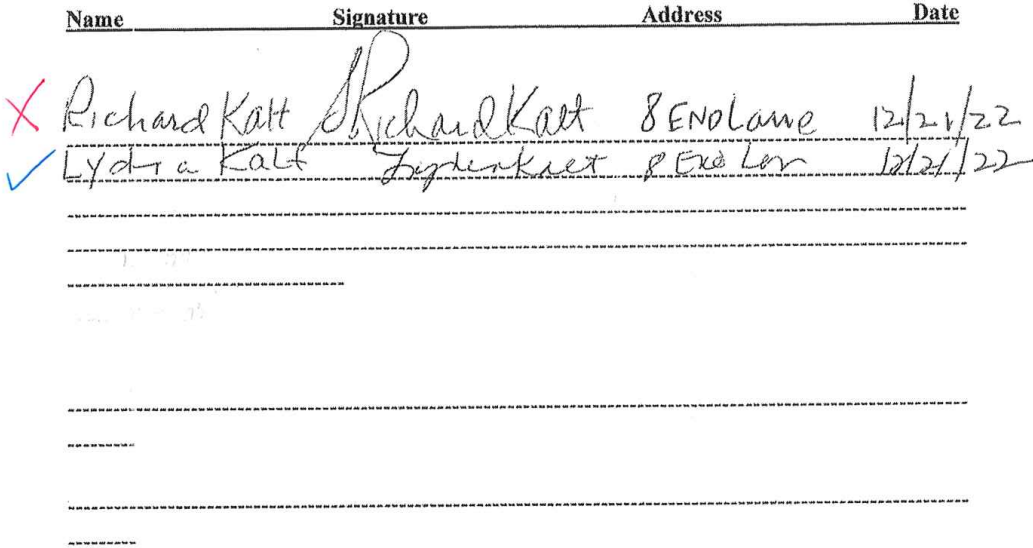 Name Signature Address Date
Richard Katt Richard Katt 8 End Lane 12/21/22
Lydia Kalt 8 End 12/21/22